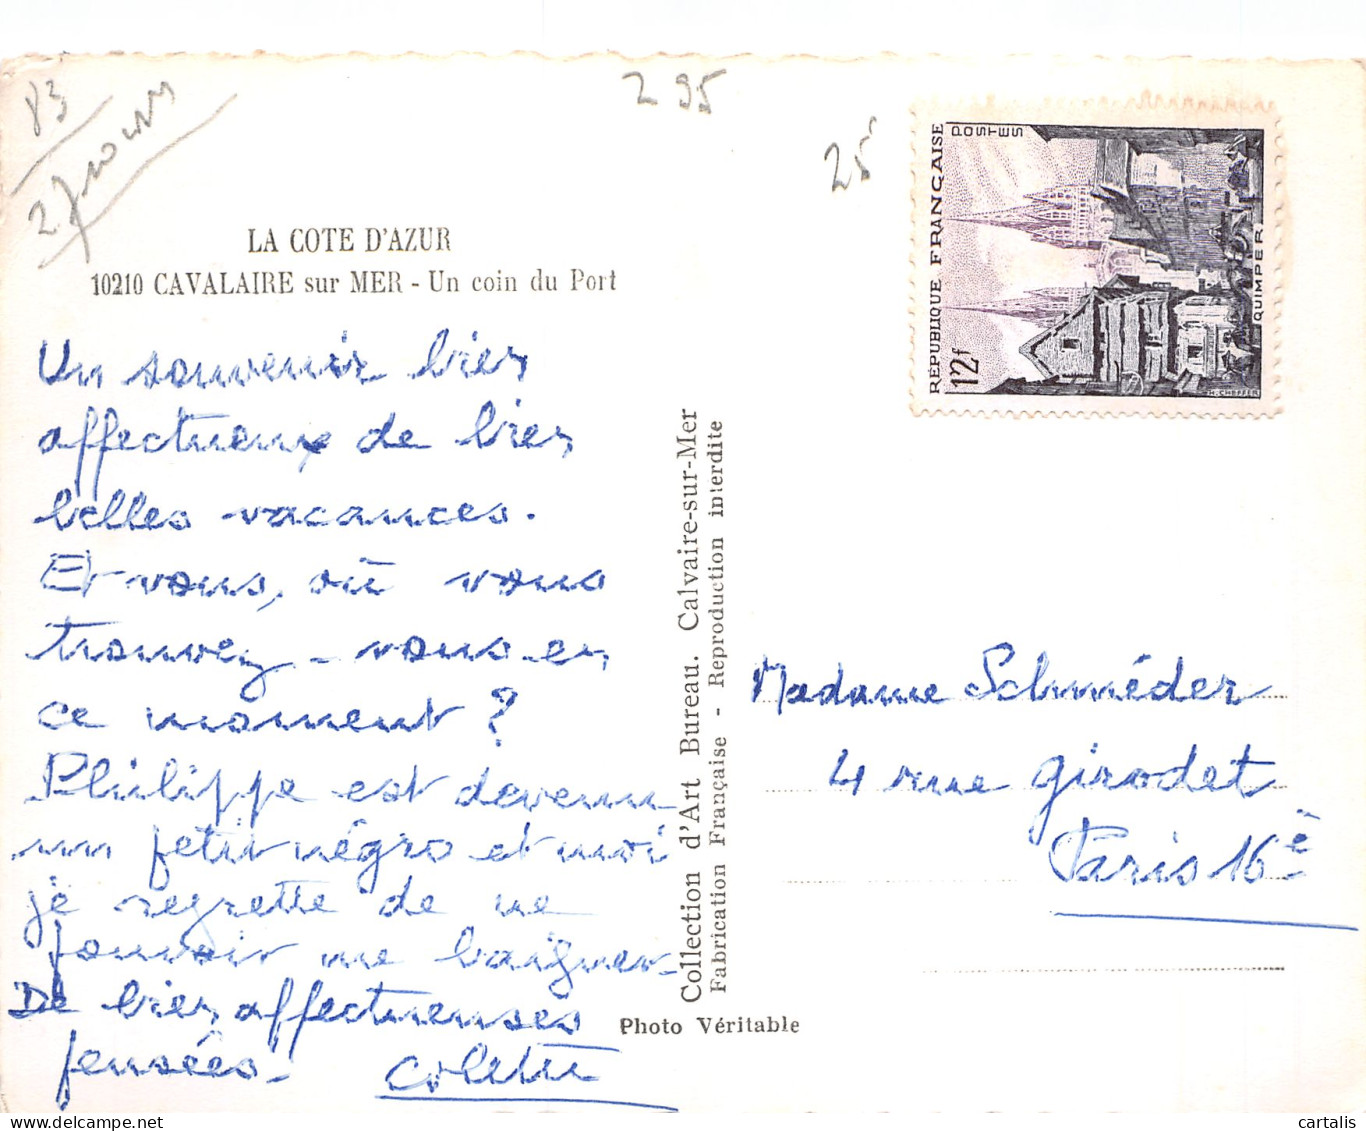 83
295
25
LA COTE D'AZUR
10210 CAVALAIRE sur MER - Un coin du Port
Un souvenir bien
affectueux de bien
belles vacances.
Et vous, où vous
trouvez-vous-en
ce moment ?
Philippe est devenu
un petit négro et moi
je regrette de ne
pouvoir me baigner-
De bien affectueuses
pensées-
Colette
Collection d'Art Bureau. Calvaire-sur-Mer
Fabrication Française - Reproduction interdite
Photo Véritable
RÉPUBLIQUE FRANÇAISE
POSTES
12f
QUIMPER
H. CHEFFER
Madame Schméder
4 rue Girodet
Paris 16è
cartalis